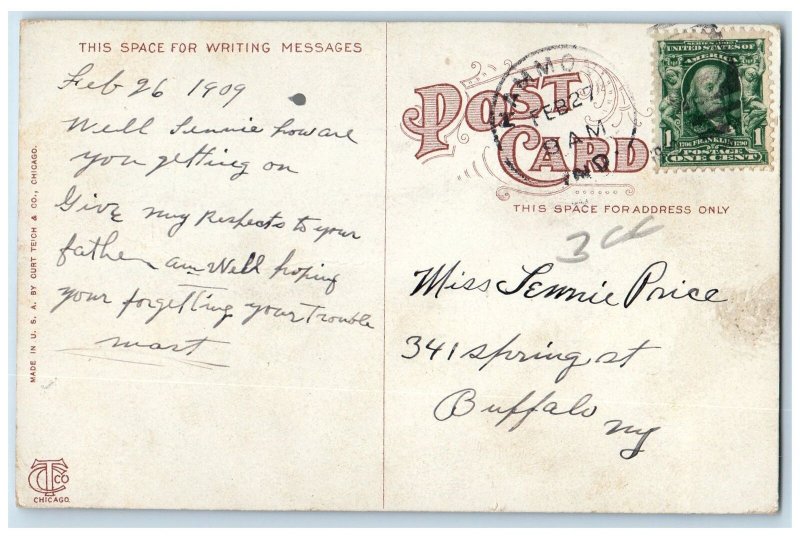 THIS SPACE FOR WRITING MESSAGES
Feb 26 1909
Well Jennie how are
you getting on
Give my Respects to your
father am Well hoping
your forgetting your Trouble
mart
MADE IN U. S. A. BY CURT TEICH & CO., CHICAGO.
CT CO
CHICAGO.
POST CARD
HAMMO
FEB 27
8 AM
IND.
SERIES 1902
UNITED STATES OF
AMERICA
1 1
1706 FRANKLIN 1790
POSTAGE
ONE CENT
THIS SPACE FOR ADDRESS ONLY
3cc
Miss Jennie Price
341 Spring st
Buffalo
ny